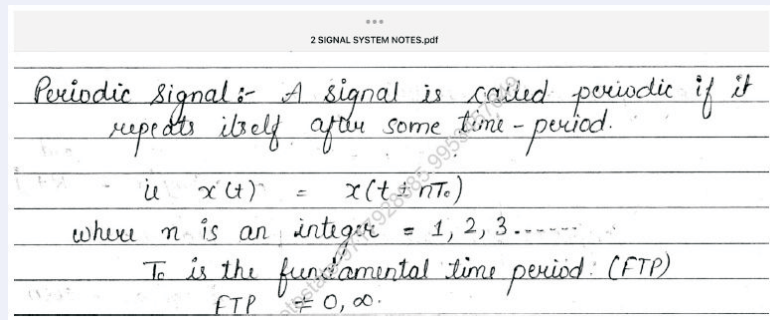 2 SIGNAL SYSTEM NOTES.pdf
Periodic Signal :- A signal is called periodic if it
repeats itself after some time-period.
ie x(t) = x(t ± nT₀)
where n is an integer = 1, 2, 3 ------
T₀ is the fundamental time period. (FTP)
FTP ≠ 0, ∞.